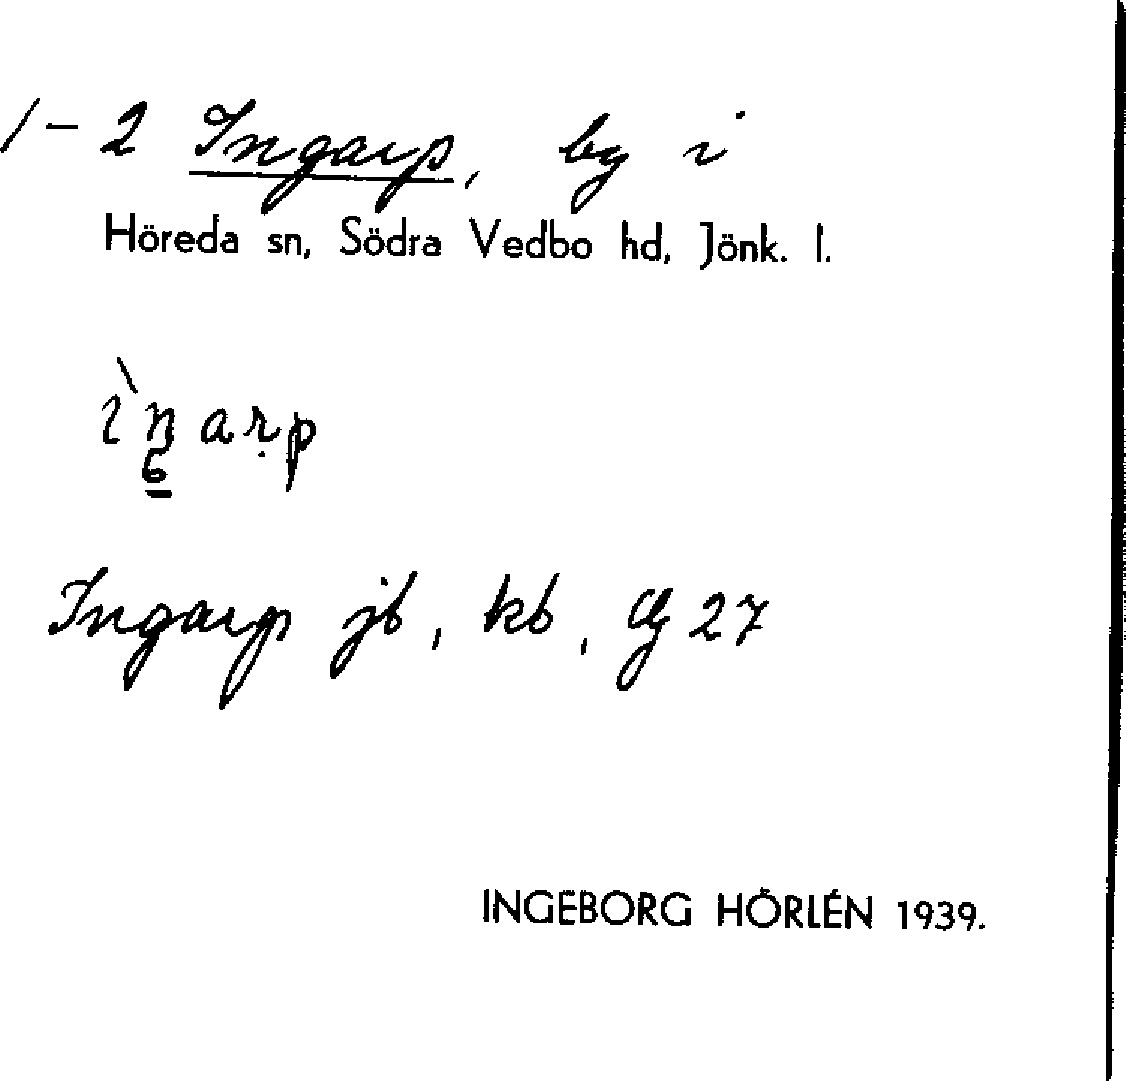 1-2 Ingarp, by i
Höreda sn, Södra Vedbo hd, Jönk. l.
ìŋarp
6
Ingarp jb, kb, Cg 27
INGEBORG HÖRLÉN 1939.